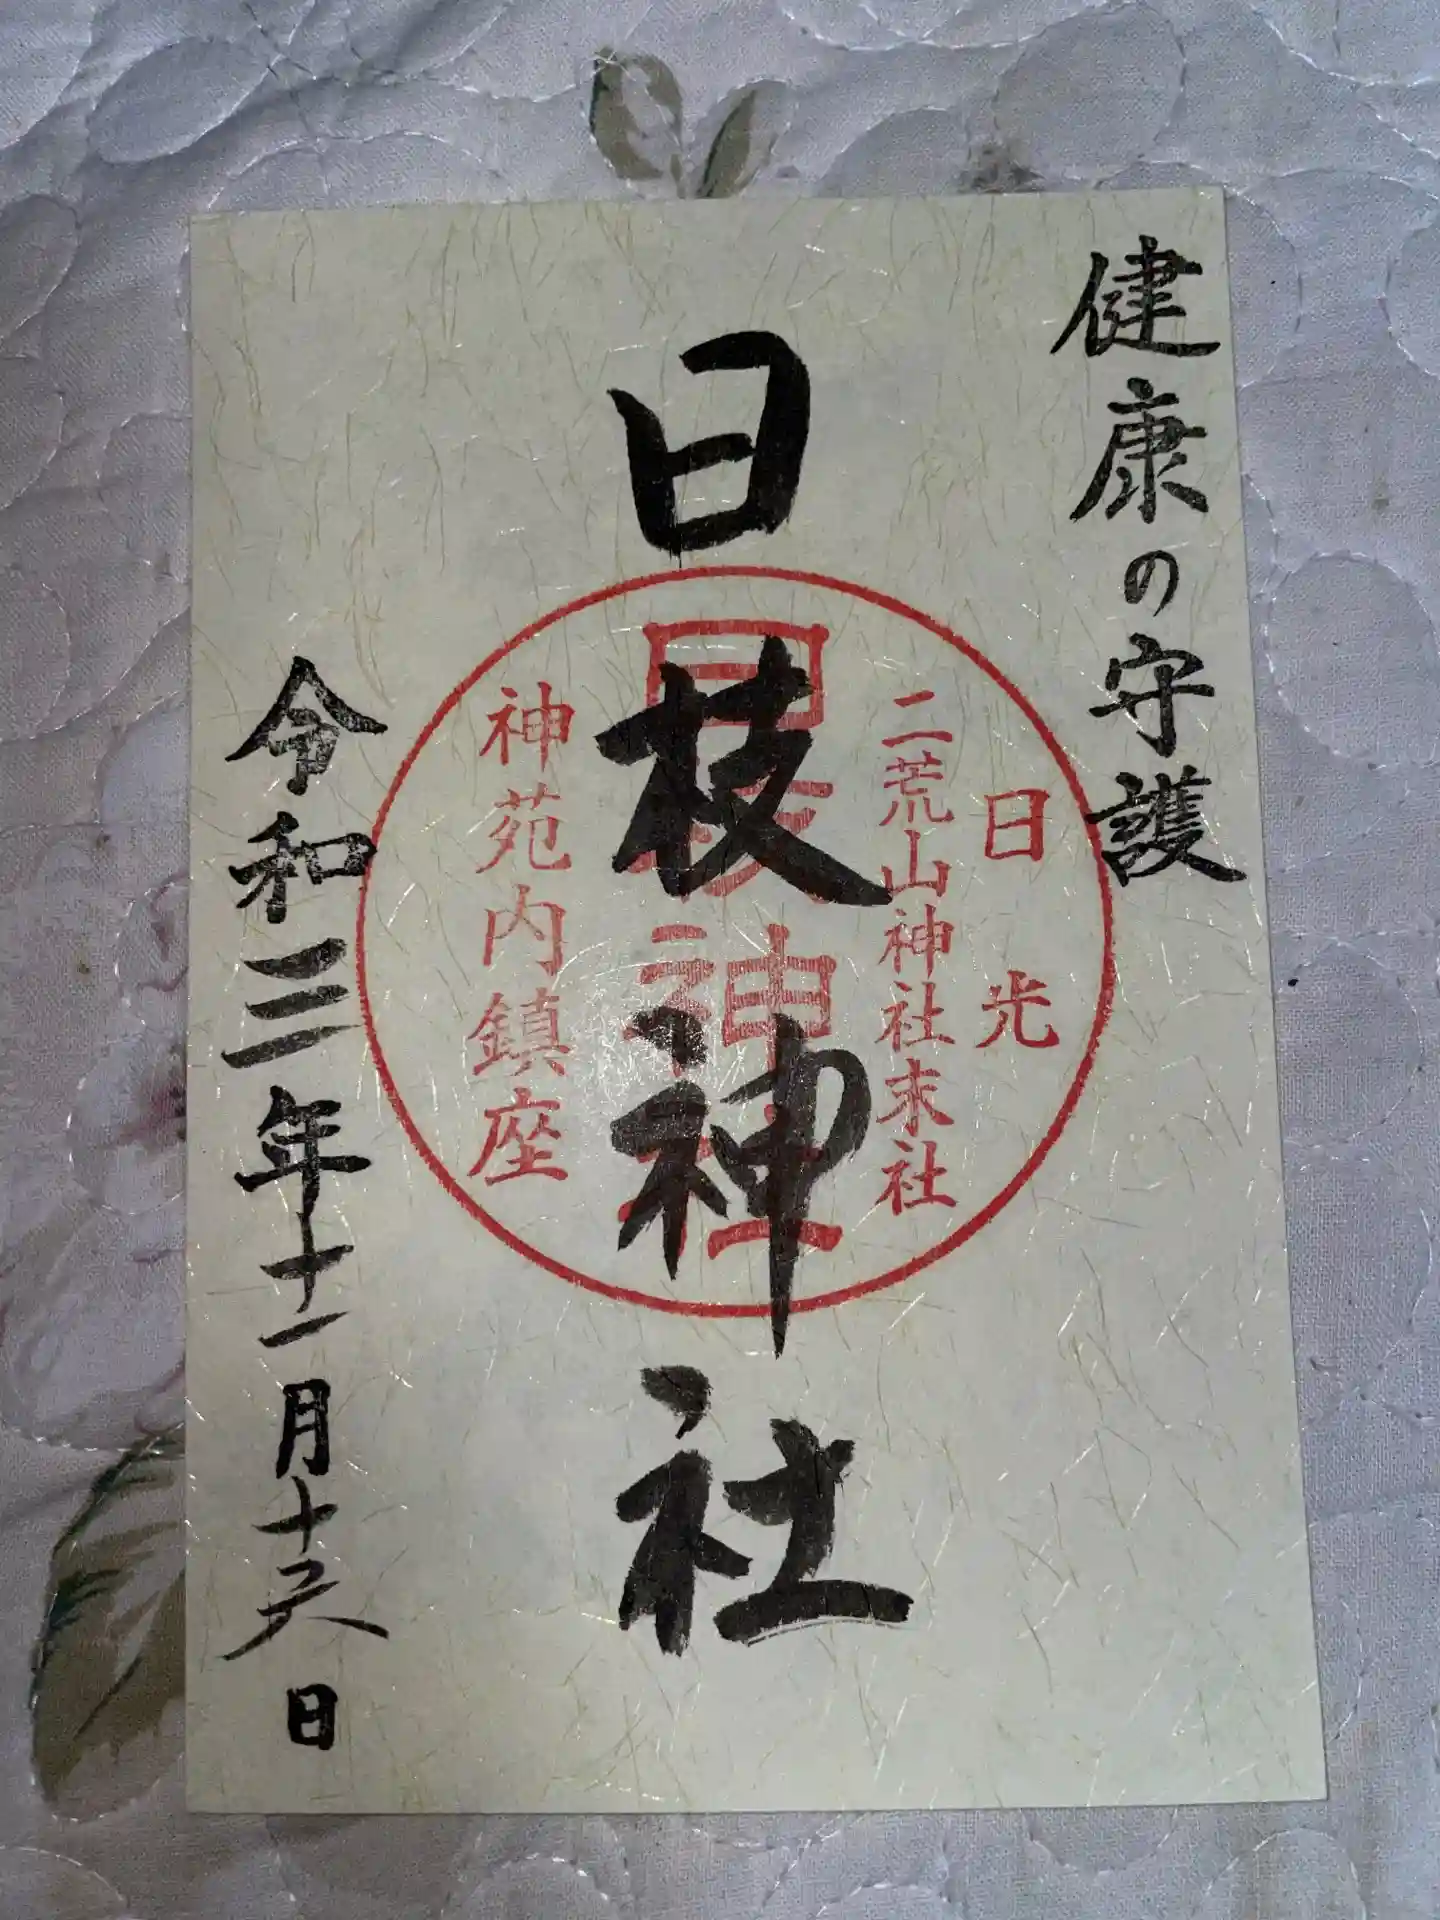 健康の守護
日光
二荒山神社末社
日枝神社
日枝神社
神苑内鎮座
令和三年十一月十六日